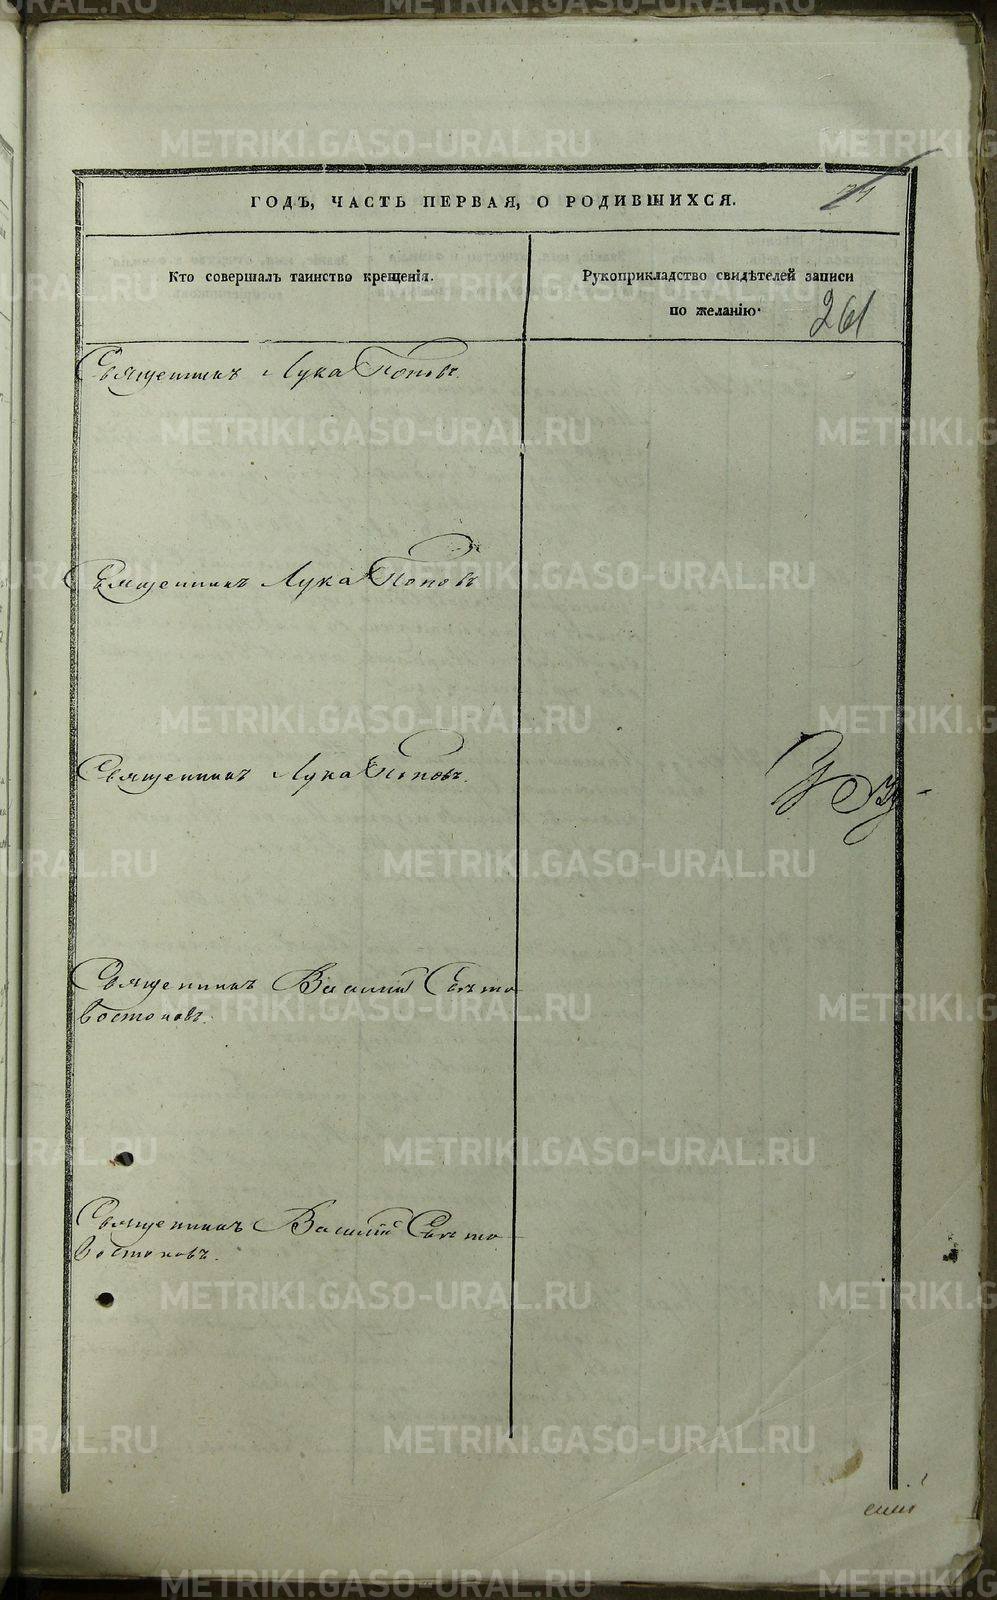 ГОДЪ, ЧАСТЬ ПЕРВАЯ, О РОДИВШИХСЯ.
Кто совершалъ таинство крещенія.
Рукоприкладство свидѣтелей записи
по желанію·
261
Священникъ Лука Поповъ.
Священникъ Лука Поповъ
Священникъ Лука Поповъ.
Священникъ Василій Свѣто
востоковъ.
Священникъ Василій Свѣто
востоковъ.
METRIKI.GASO-URAL.RU